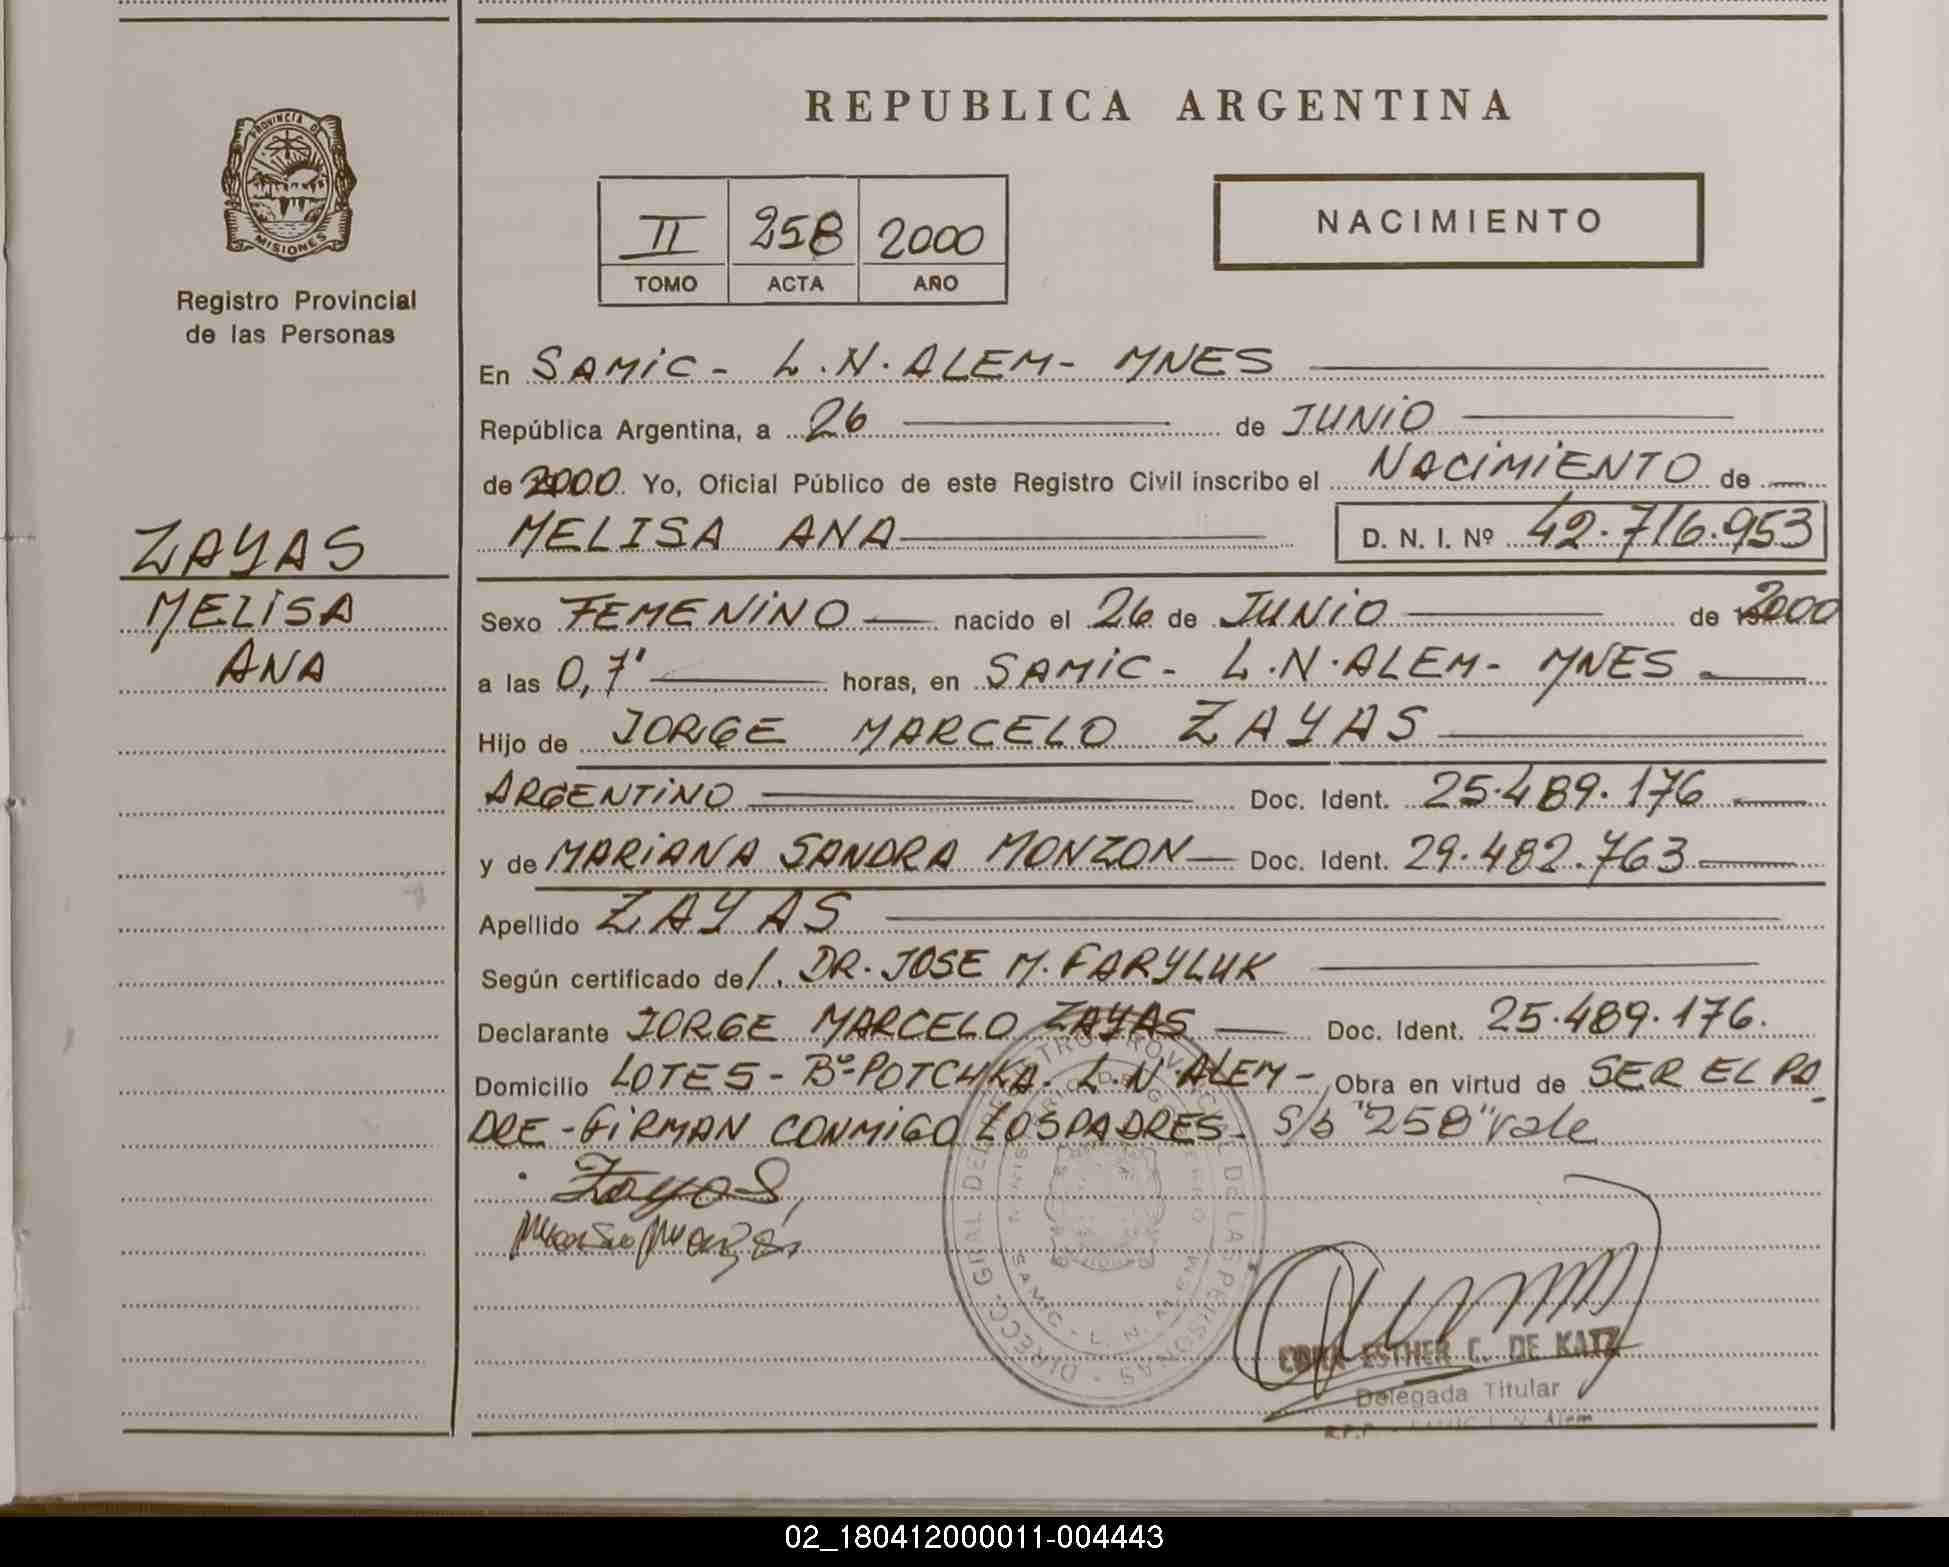 PROVINCIA DE
MISIONES
Registro Provincial
de las Personas
ZAYAS
MELISA
ANA
REPUBLICA ARGENTINA
II 258 2000
TOMO ACTA AÑO
NACIMIENTO
En SAMIC - L.N. ALEM - MNES
República Argentina, a 26 de JUNIO
de 2000 Yo, Oficial Público de este Registro Civil inscribo el NACIMIENTO de
MELISA ANA D. N. I. Nº 42.716.953
Sexo FEMENINO nacido el 26 de JUNIO de 2000
a las 0,7' horas, en SAMIC - L.N. ALEM - MNES
Hijo de JORGE MARCELO ZAYAS
ARGENTINO Doc. Ident. 25.489.176
y de MARIANA SANDRA MONZON Doc. Ident. 29.482.763
Apellido ZAYAS
Según certificado de/. DR. JOSE M. FARYLUK
Declarante JORGE MARCELO ZAYAS Doc. Ident. 25.489.176.
Domicilio LOTES - Bº POTCHKA - L.N. ALEM - Obra en virtud de SER EL PA
DRE - FIRMAN CONMIGO LOS PADRES - S/b "258" vale
Zayas
DIRECC. GRAL DEL REGISTRO PROVINCIAL DE LAS PERSONAS
SAMIC - L. N. ALEM
ESTHER C. DE KATZ
Delegada Titular
R.P.P. SAMIC L. N. Alem
02_180412000011-004443